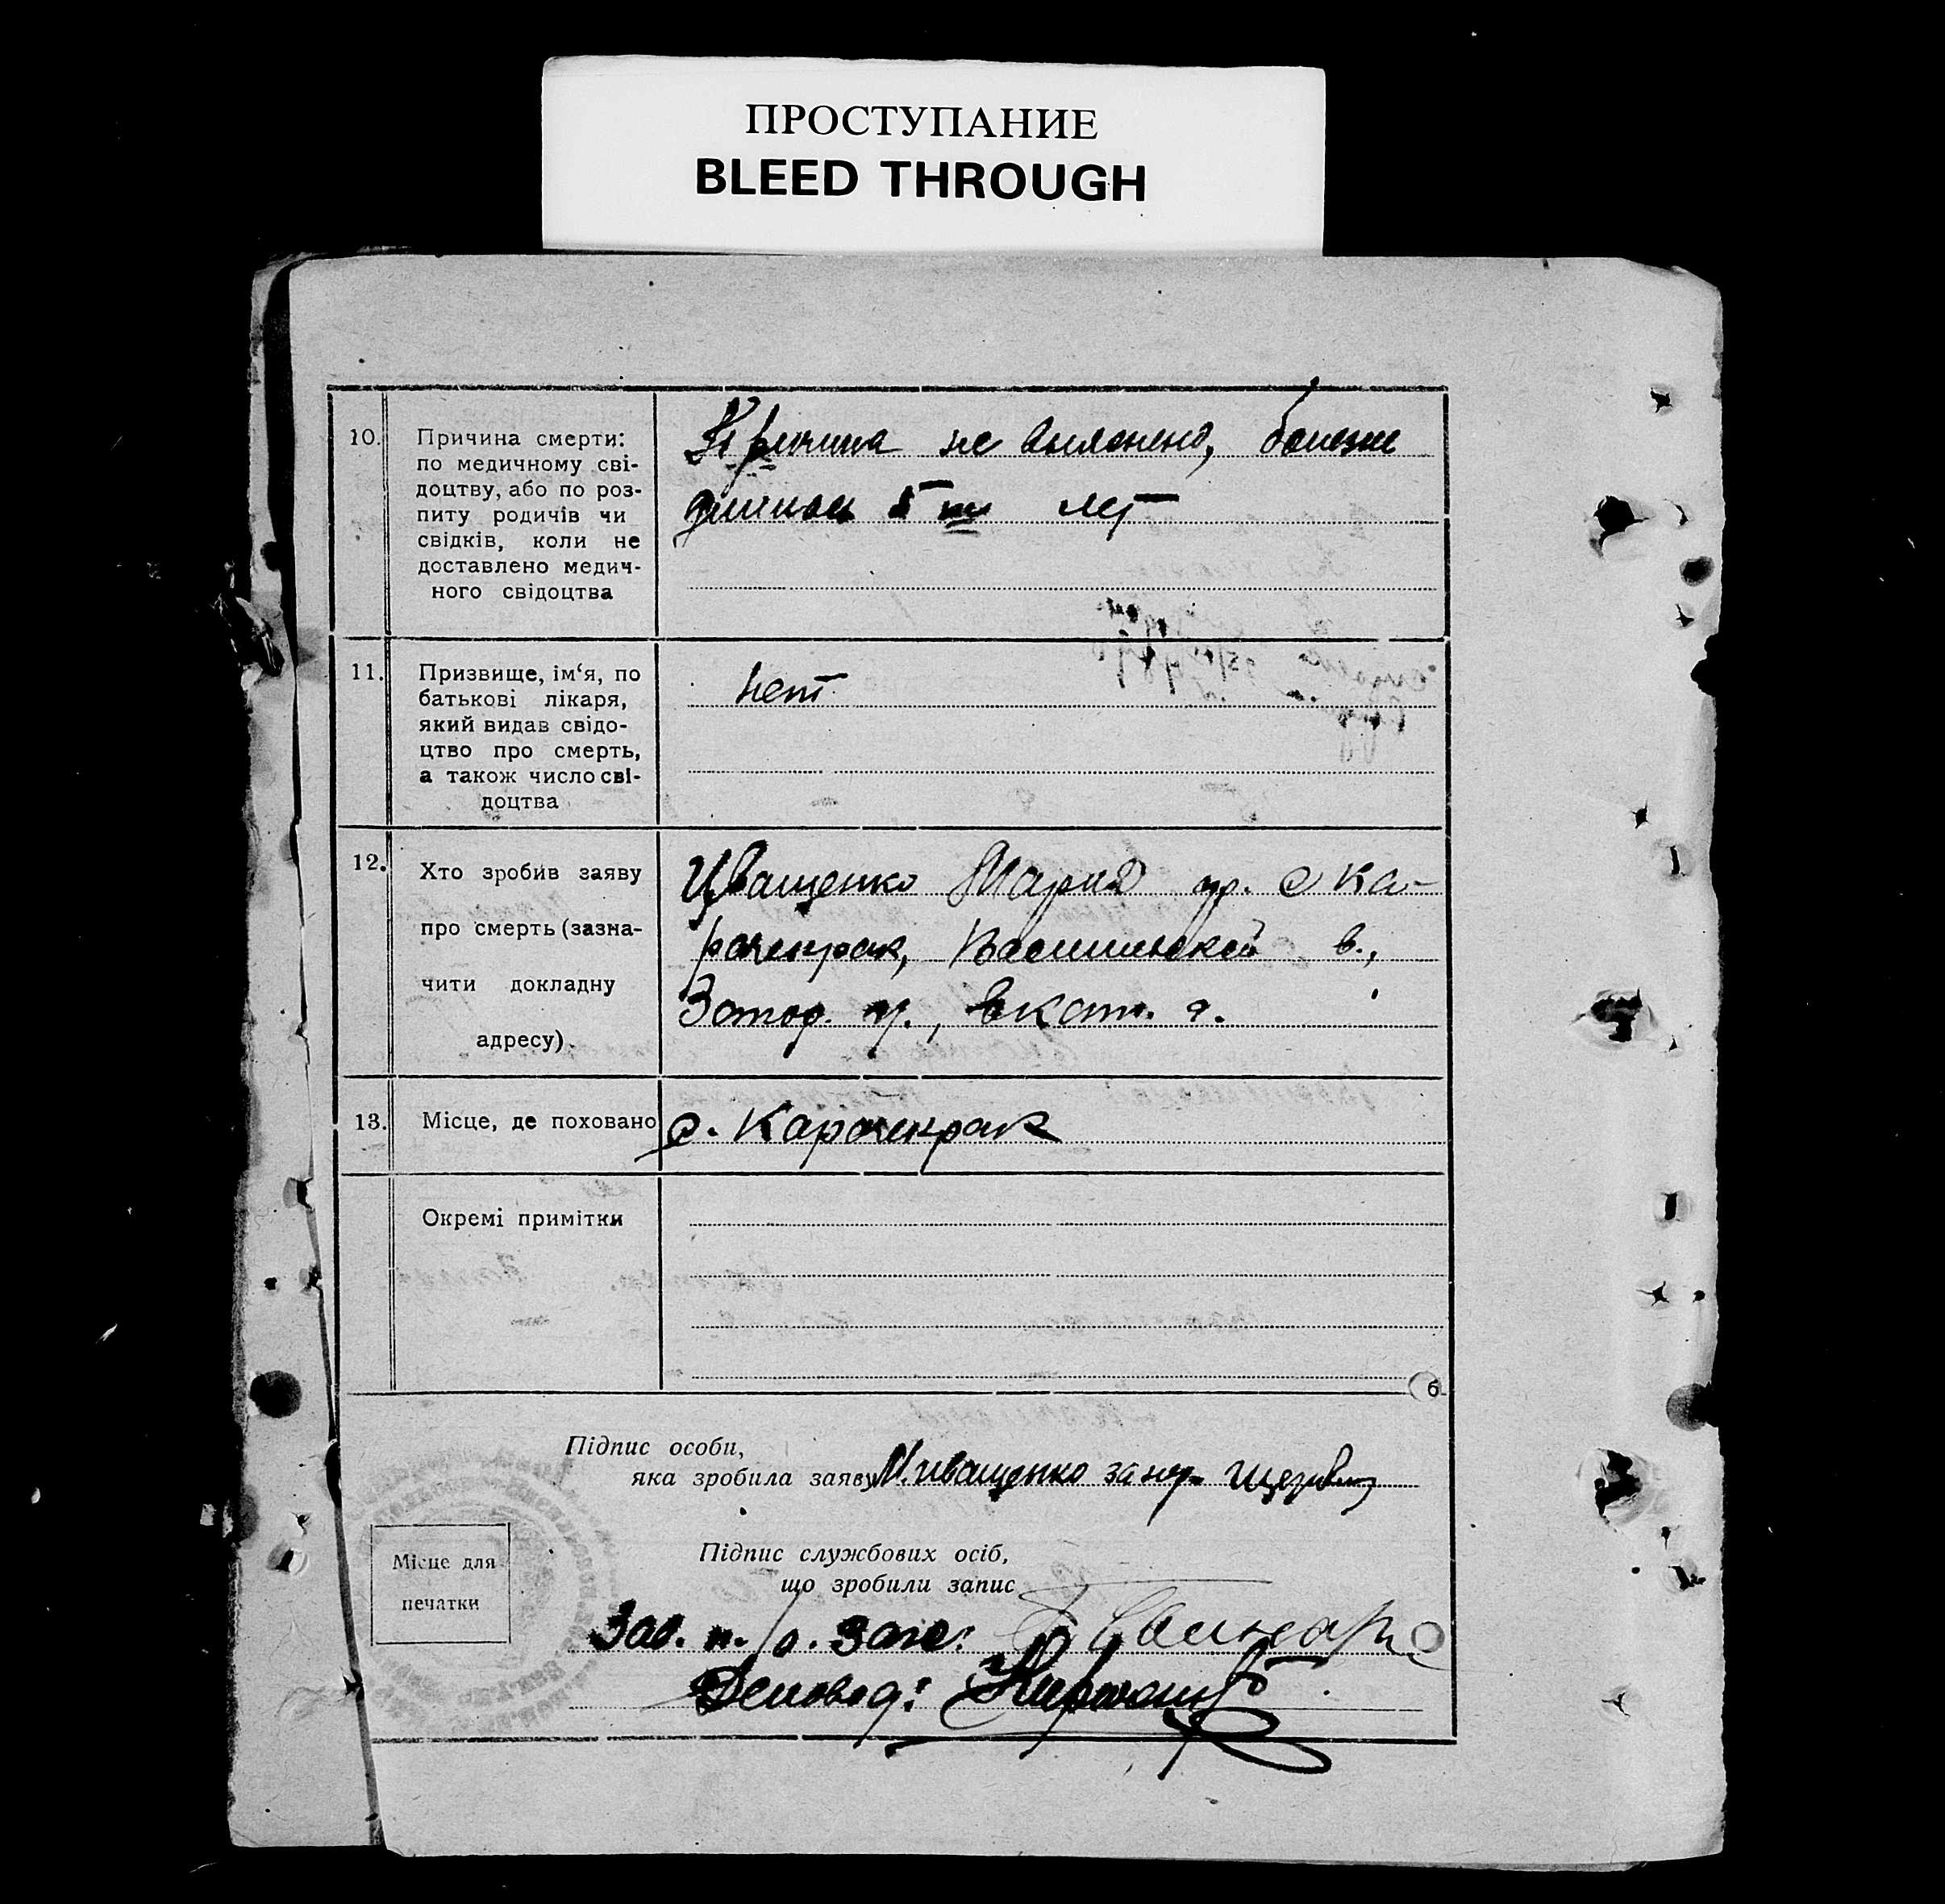 ПРОСТУПАНИЕ
BLEED THROUGH
10.
Причина смерти:
по медичному сві-
доцтву, або по роз-
питу родичів чи
свідків, коли не
доставлено медич-
ного свідоцтва
Причина не выяснено, болезне
5 ти лет
11.
Призвище, ім‘я, по
батькові лікаря,
який видав свідо-
цтво про смерть,
а також число сві-
доцтва
нет
12.
Хто зробив заяву
про смерть (зазна-
чити докладну
адресу).
Иващенко Мария гр. с Ка-
рачекрак, Васильевской в.,
Запор. у., Екат. г.
13.
Місце, де поховано
с. Карачекрак
Окремі примітки
6
Підпис особи,
яка зробила заяву М. Иващенко за нер.
Підпис службових осіб,
що зробили запис
Місце для
печатки
Зав. п./о. Загс:
Деловод: